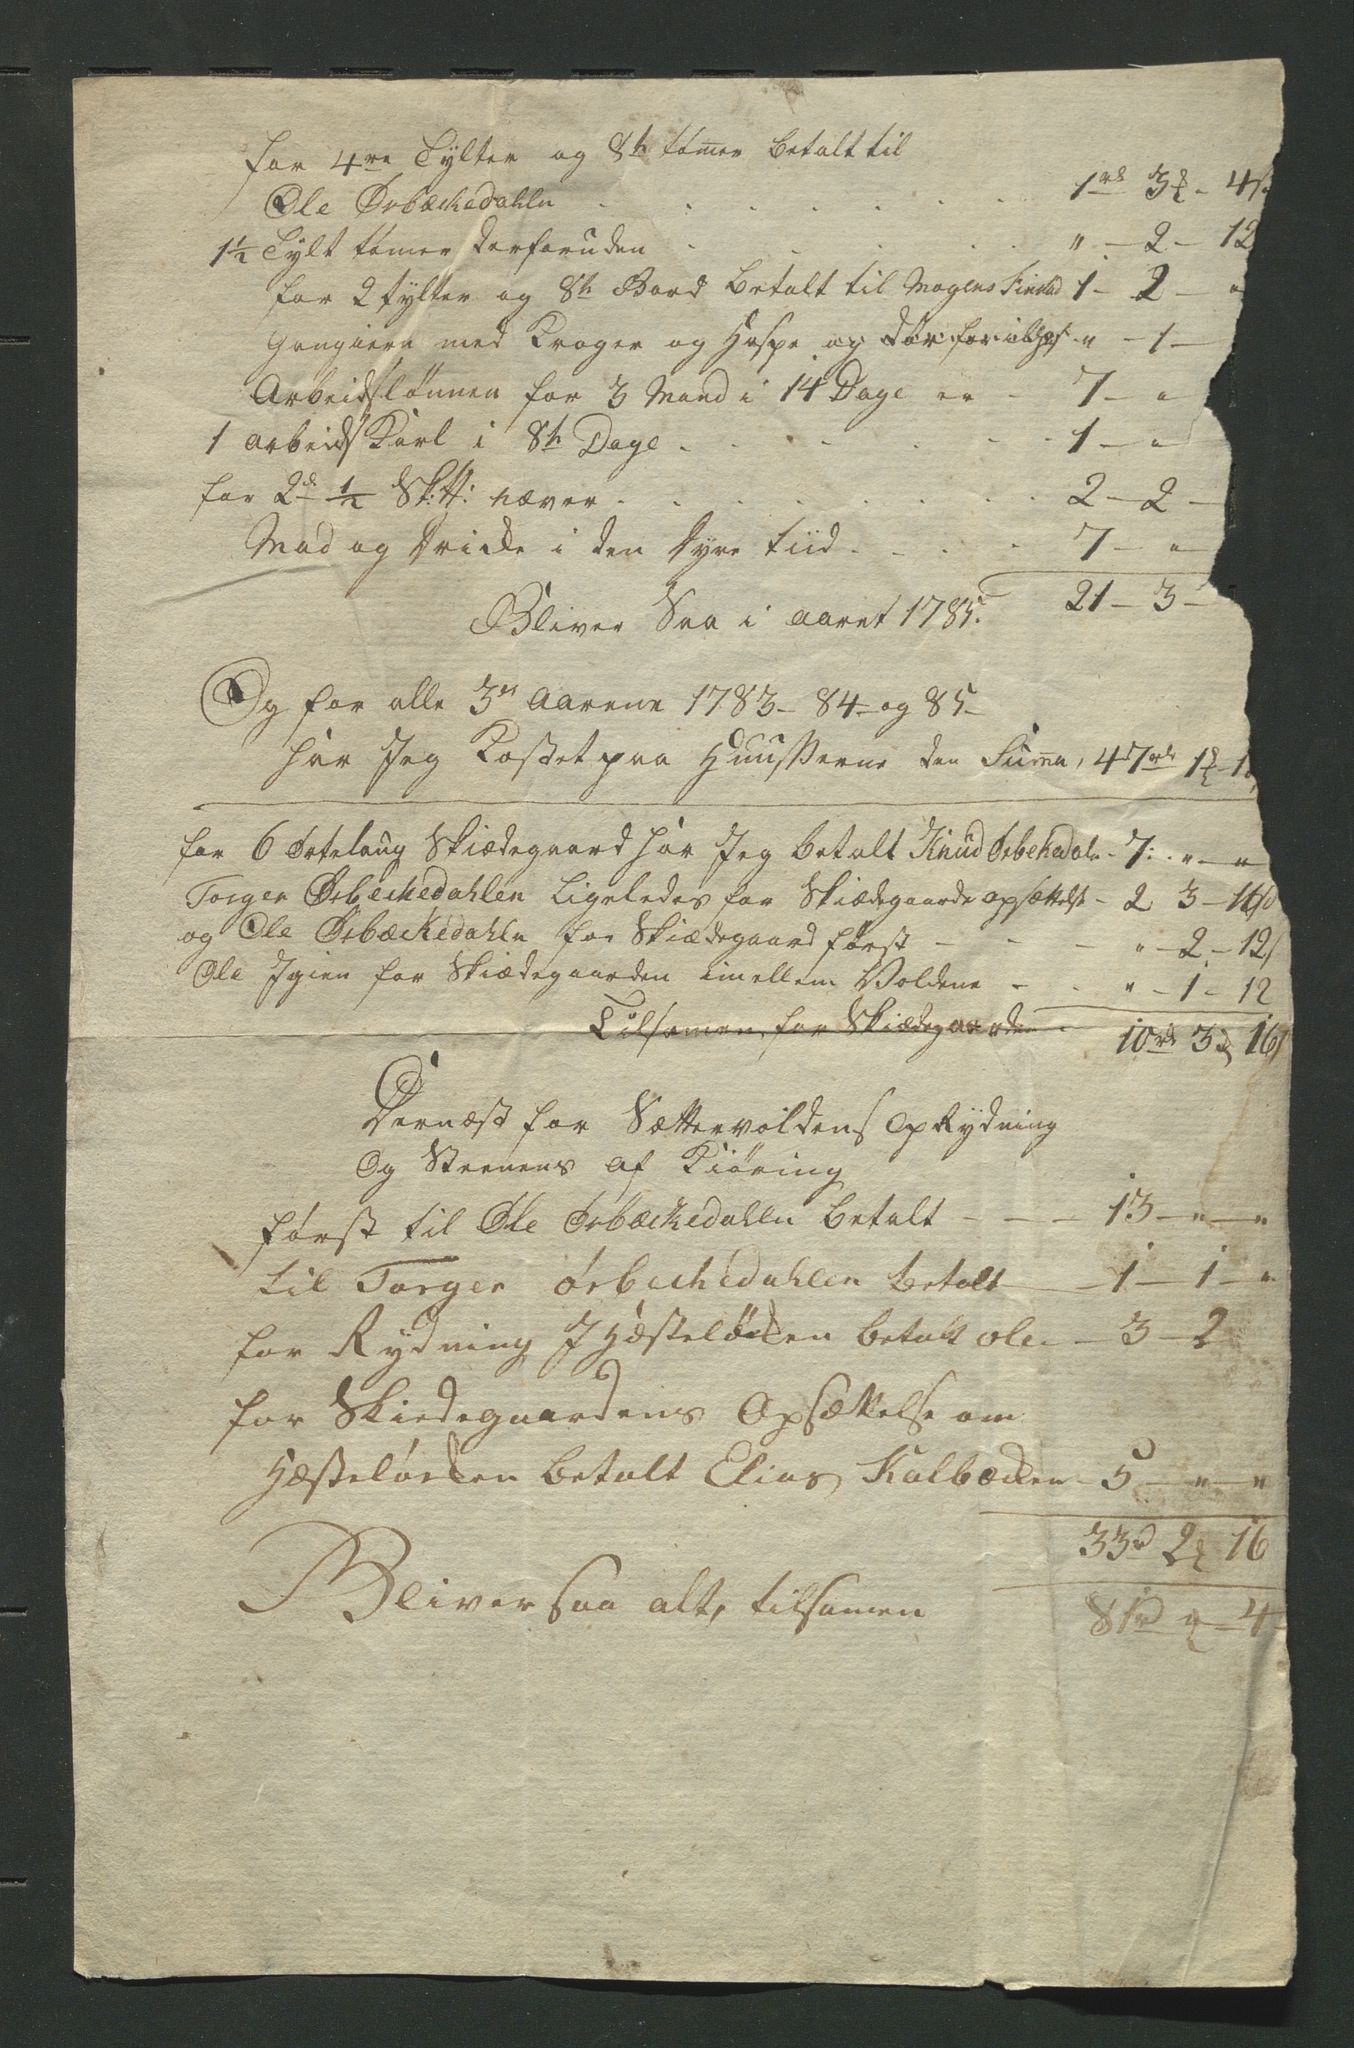 for 4re Tylter og 8te tømer betalt til
Ole Ørbæchedahln . . . . . . . 1rd 3 - 4s
1½ Tylt tømer derforuden . . . . " - 2 - 12
for 2 tylter og 8te Bord betalt til Mogens 1 - 2 - "
Gangiern med Kroger og Haspe og " - 1 -
Arbeidslønnen for 3 Mand i 14 Dage er - 7 - "
1 arbeids Karl i 8te Dage . . . . 1 - "
for 2 ½ næver . . . . . 2 - 2 -
Mad og Dricke i den dyre tiid . . . . 7 - "
Bliver Saa i aaret 1785. 21 - 3 -
Og for alle 3de aarene 1783 - 84 - og 85 -
har Jeg Kostet paa Huusserne den Suma, 47rd 1
for 6 Skiædegaard har Jeg betalt Knud Ørbekedaln - 7: " - "
Torger Ørbechedahlen Ligeledes for Skiædegaards opsættelse - 2 3 - 16s
og Ole Ørbæckedahln for Skiædegaard først - - - " - 2 - 12s
Ole Igien for Skiædegaarden imellem Voldene - - " - 1 - 12
Tilsamen, for Skiædegaarden - 10rd 3 16s
Dernæst for Sættervoldens opRydning
Og Steenens af Kiøring
først til Ole Ørbæckedahln betalt - - - 13 - " - "
til Torger Ørbechedahlen betalt - 1 - 1 - "
for Rydning I Hæsteløcken betalt ole - 3 - 2
for Skiedegaardens Opsættelse om
Hæsteløcken betalt Elias Kalbæcken - 5 - " - "
33rd 2 16
Bliver saa alt, tilsamen 81rd " - 4 -